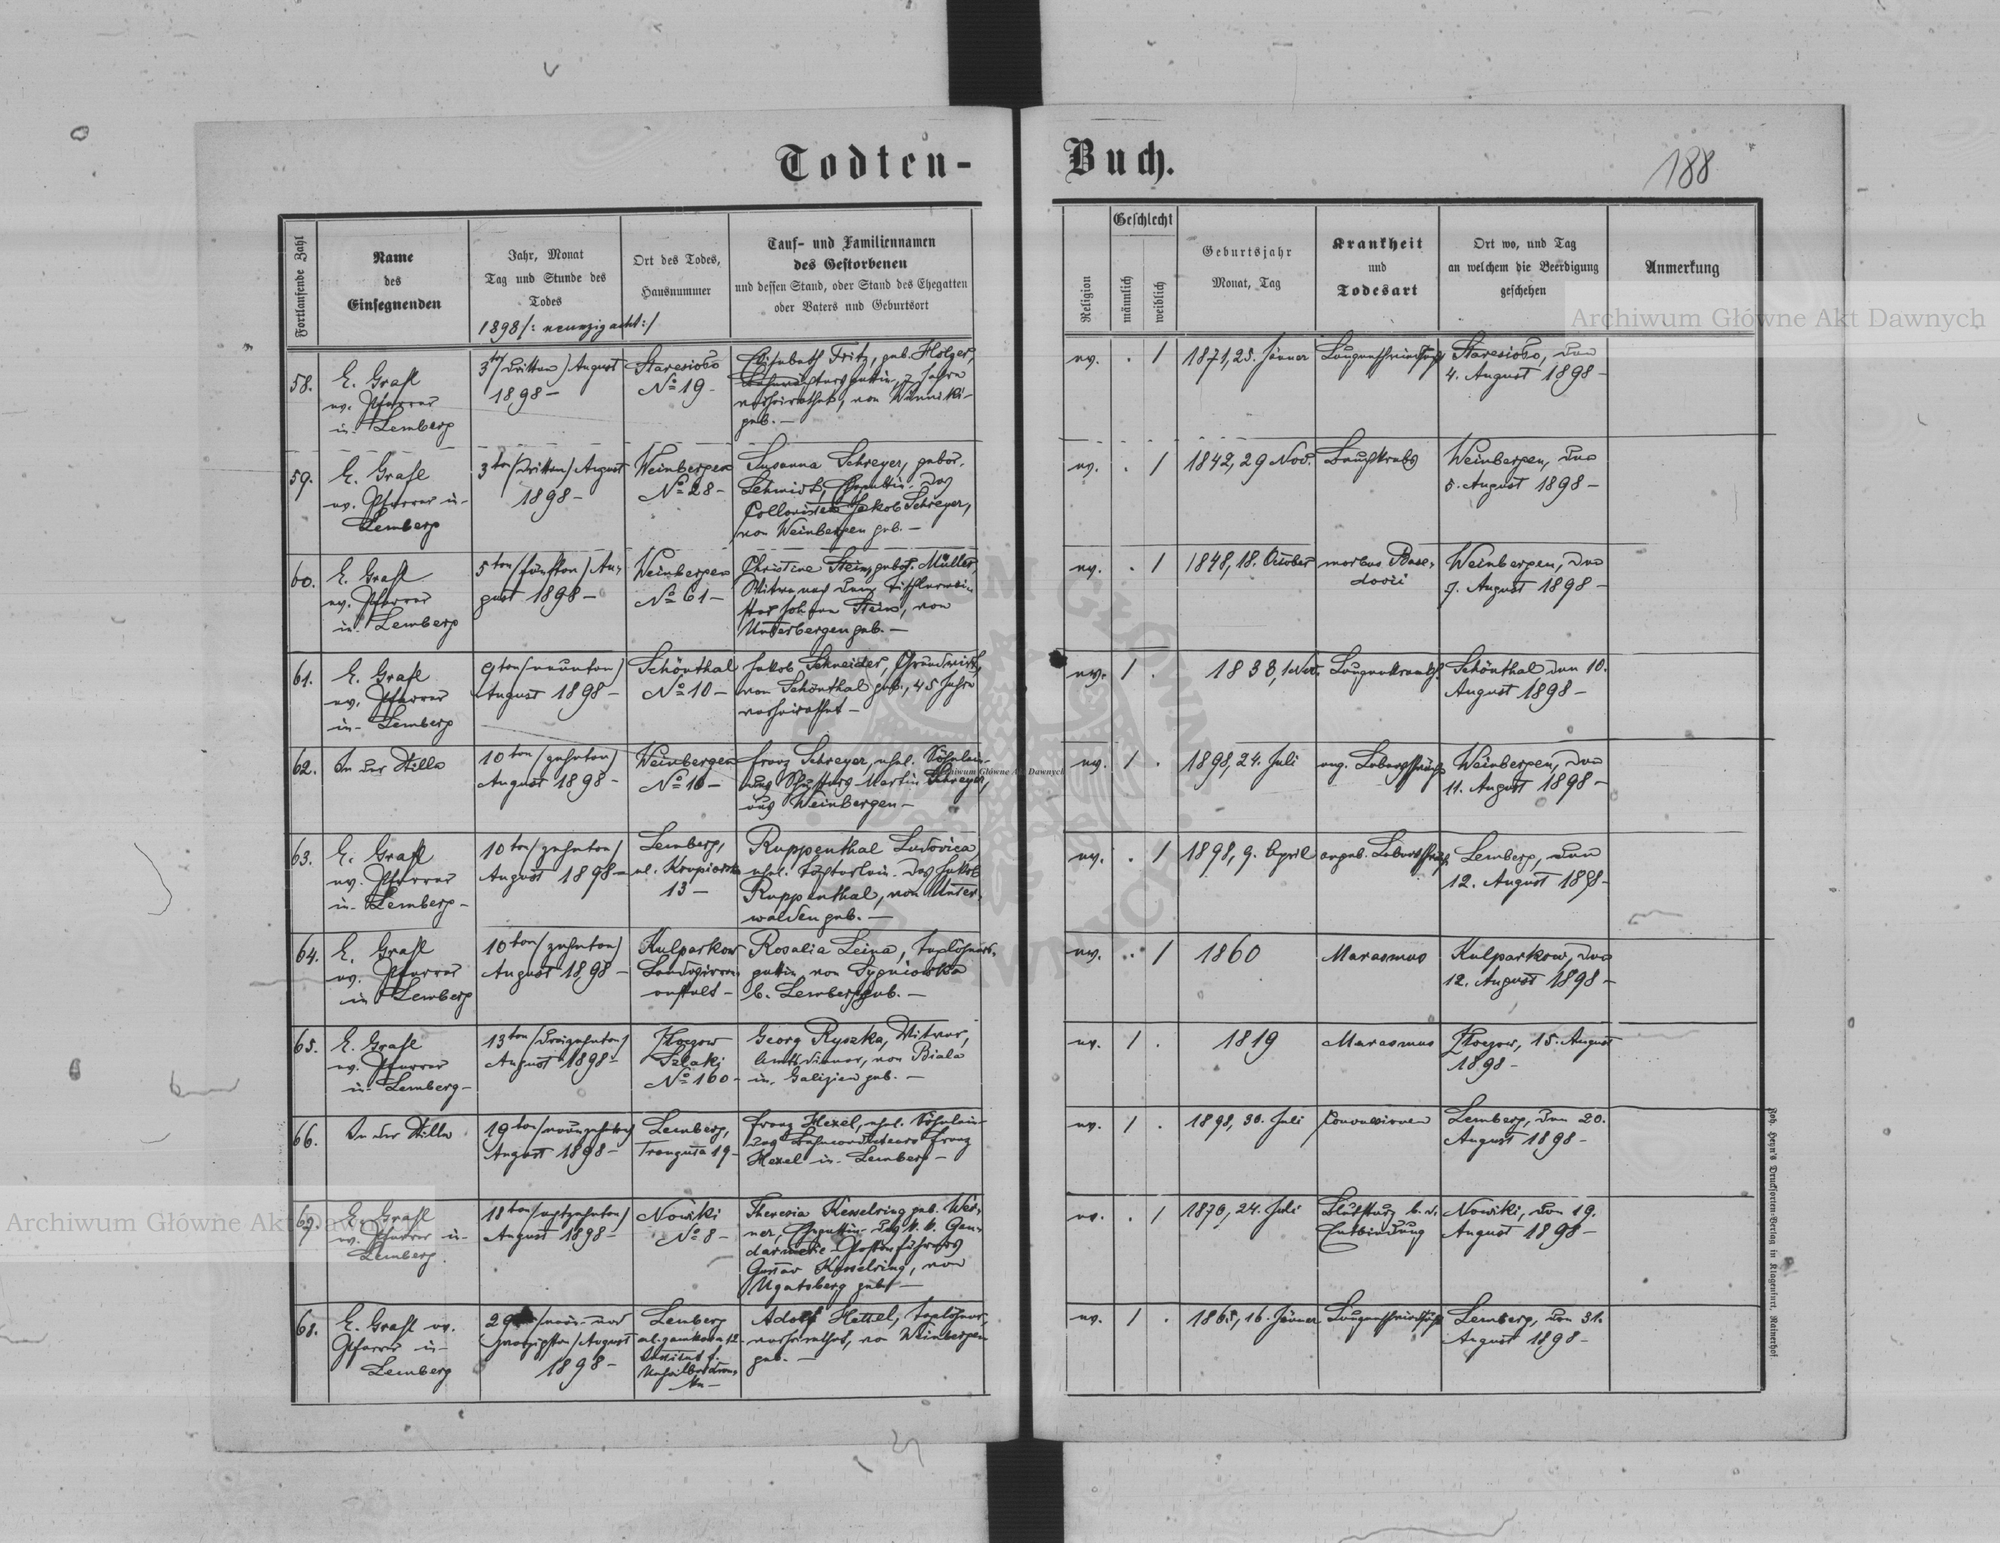 Todten-Buch.
188
Fortlaufende Zahl
Name
des
Einsegnenden
Jahr, Monat
Tag und Stunde des
Todes
1898/: neunzig acht:/
Ort des Todes,
Hausnummer
Tauf- und Familiennamen
des Gestorbenen
und dessen Stand, oder Stand des Ehegatten
oder Vaters und Geburtsort
Religion
Geschlecht
männlich
weiblich
Geburtsjahr
Monat, Tag
Krankheit
und
Todesart
Ort wo, und Tag
an welchem die Beerdigung
geschehen
Anmerkung
58.
E. Grafl
ev. Pfarrer
in Lemberg
3ten/dritten/August
1898 –
Staresioło
No 19 –
Elisabeth Fritz, geb. Holzer,
gattin, 7 Jahre
verheirathet, von Winniki
geb. –
ev. . 1
1871, 25. Jänner
Lungenschwindsucht
Staresioło, den
4. August 1898 –
59.
E. Grafl
ev. Pfarrer in
Lemberg
3ten/dritten/August
1898 –
Weinbergen
No 28 –
Susanna Schreyer, gebor.
Schmidt, Ehegattin des
Collonisten Jakob Schreyer,
von Weinbergen geb. –
ev. . 1
1842, 29 Nov.
Bauchkrebs
Weinbergen, den
5. August 1898 –
60.
E. Grafl
ev. Pfarrer
in Lemberg
5ten/fünften/Au-
gust 1898 –
Weinbergen
No 61 –
Christine Stein, gebor. Müller
Witwe nach dem Tischlermei-
ster Johann Stein, von
Unterbergen geb. –
ev. . 1
1848, 18. October
morbus Base-
dovii
Weinbergen, den
7. August 1898 –
61.
E. Grafl
ev. Pfarrer
in Lemberg
9ten/neunten/
August 1898 –
Schönthal
No 10 –
Jakob Schneider, Grundwirth,
von Schönthal geb., 45 Jahre
verheirathet –
ev. 1 .
1838, 1 Nov.
Lungenkrankh.
Schönthal den 10.
August 1898 –
62.
In der Stille
10ten/zehnten/
August 1898 –
Weinbergen
No 16 –
Franz Schreyer, ehel. Söhnlein
des Martin Schreyer,
aus Weinbergen –
ev. 1 .
1898, 24. Juli
ang. Lebensschwäche
Weinbergen, den
11. August 1898 –
63.
E. Grafl
ev. Pfarrer
in Lemberg –
10ten/zehnten/
August 1898 –
Lemberg,
ul.
13 –
Ruppenthal Ludovica
ehel. Töchterlein des Jakob
Ruppenthal, von Unter-
walden geb. –
ev. . 1
1898, 9. April
angeb. Lebensschwäche
Lemberg, den
12. August 1898 –
64.
E. Grafl
ev. Pfarrer
in Lemberg
10ten/zehnten/
August 1898 –
Kulparkow
Landesirren-
anstalt –
Rosalia Leina, Taglöhners-
gattin, von Sygniowka
b. Lemberg geb. –
ev. . 1
1860
Marasmus
Kulparkow, den
12. August 1898 –
65.
E. Grafl
ev. Pfarrer
in Lemberg –
13ten/dreizehnten/
August 1898 –
Złoczow
Szlaki
No 160 –
Georg Ryszka, Witwer,
Amtsdiener, von Biala
in Galizien geb. –
ev. 1 .
1819
Marasmus
Złoczow, 15. August
1898 –
66.
In der Stille
19ten/neunzehnten/
August 1898 –
Lemberg,
Tranguta 19 –
Franz Hexel, ehel. Söhnlein
des Bahnconducteurs Franz
Hexel in Lemberg –
ev. 1 .
1898, 30. Juli
Convulsionen
Lemberg, den 20.
August 1898 –
67.
E. Grafl
ev. Pfarrer in
Lemberg
18ten/achtzehnten/
August 1898 –
Nowiki
No 8 –
Theresia Kesselring geb. Wer-
ner, Ehegattin des k. k. Gen-
darmerie Postenführers
Gustav Kesselring, von
Ugartsberg gebt –
ev. . 1
1870, 24. Juli
Blutsturz b. d.
Entbindung
Nowiki, den 19.
August 1898 –
68.
E. Grafl ev.
Pfarrer in
Lemberg
29ten/neun und
zwanzigsten/August
1898 –
Lemberg
ul. 12
Institut f.
Unheilbar Kran-
ke –
Adolf Hettel, Taglöhner,
verheirathet, von Weinbergen
geb. –
ev. 1 .
1865, 16. Jänner
Lungenschwindsucht
Lemberg, den 31.
August 1898 –
Joh. Heyn's Drucksorten-Verlag in Klagenfurt. Rainerhof
Archiwum Główne Akt Dawnych
Archiwum Główne Akt Dawnych
Archiwum Główne Akt Dawnych